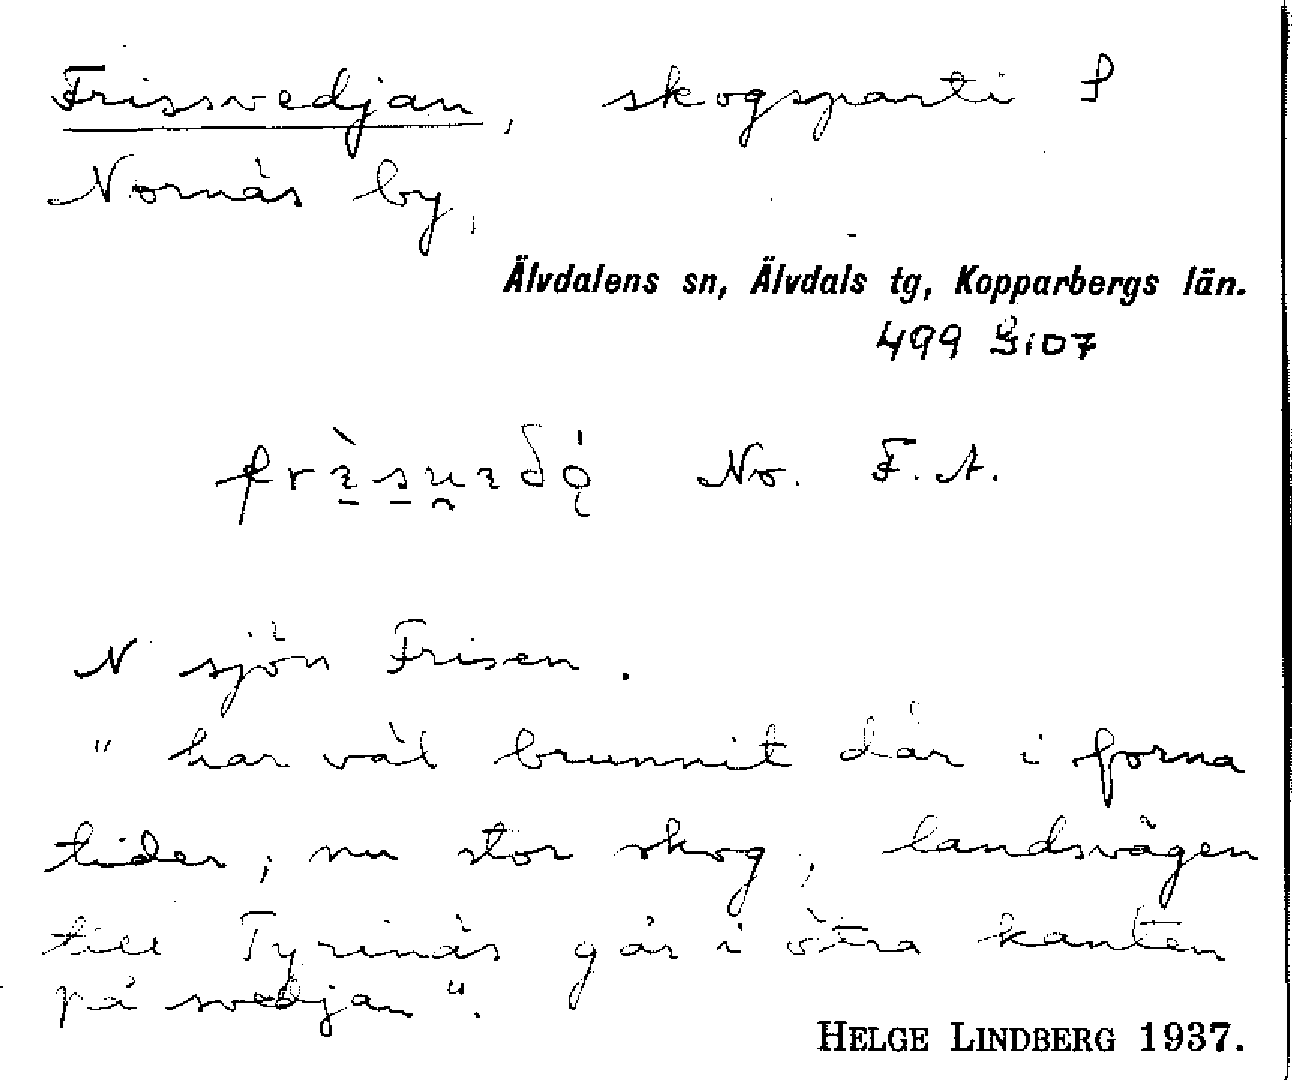 Frissvedjan, skogsparti S
Nornäs by,
Älvdalens sn, Älvdals tg, Kopparbergs län.
499 Si07
No. F. A.
N sjön Frisen.
"har väl brunnit där i forna
tider, nu stor skog, landsvägen
till Tyrinäs går i östra kanten
på svedjan".
HELGE LINDBERG 1937.